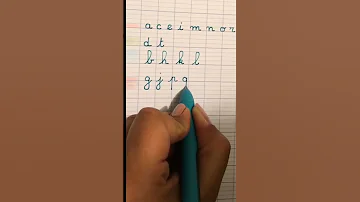 a c e i m n o r
d t
b h k l
g j p q